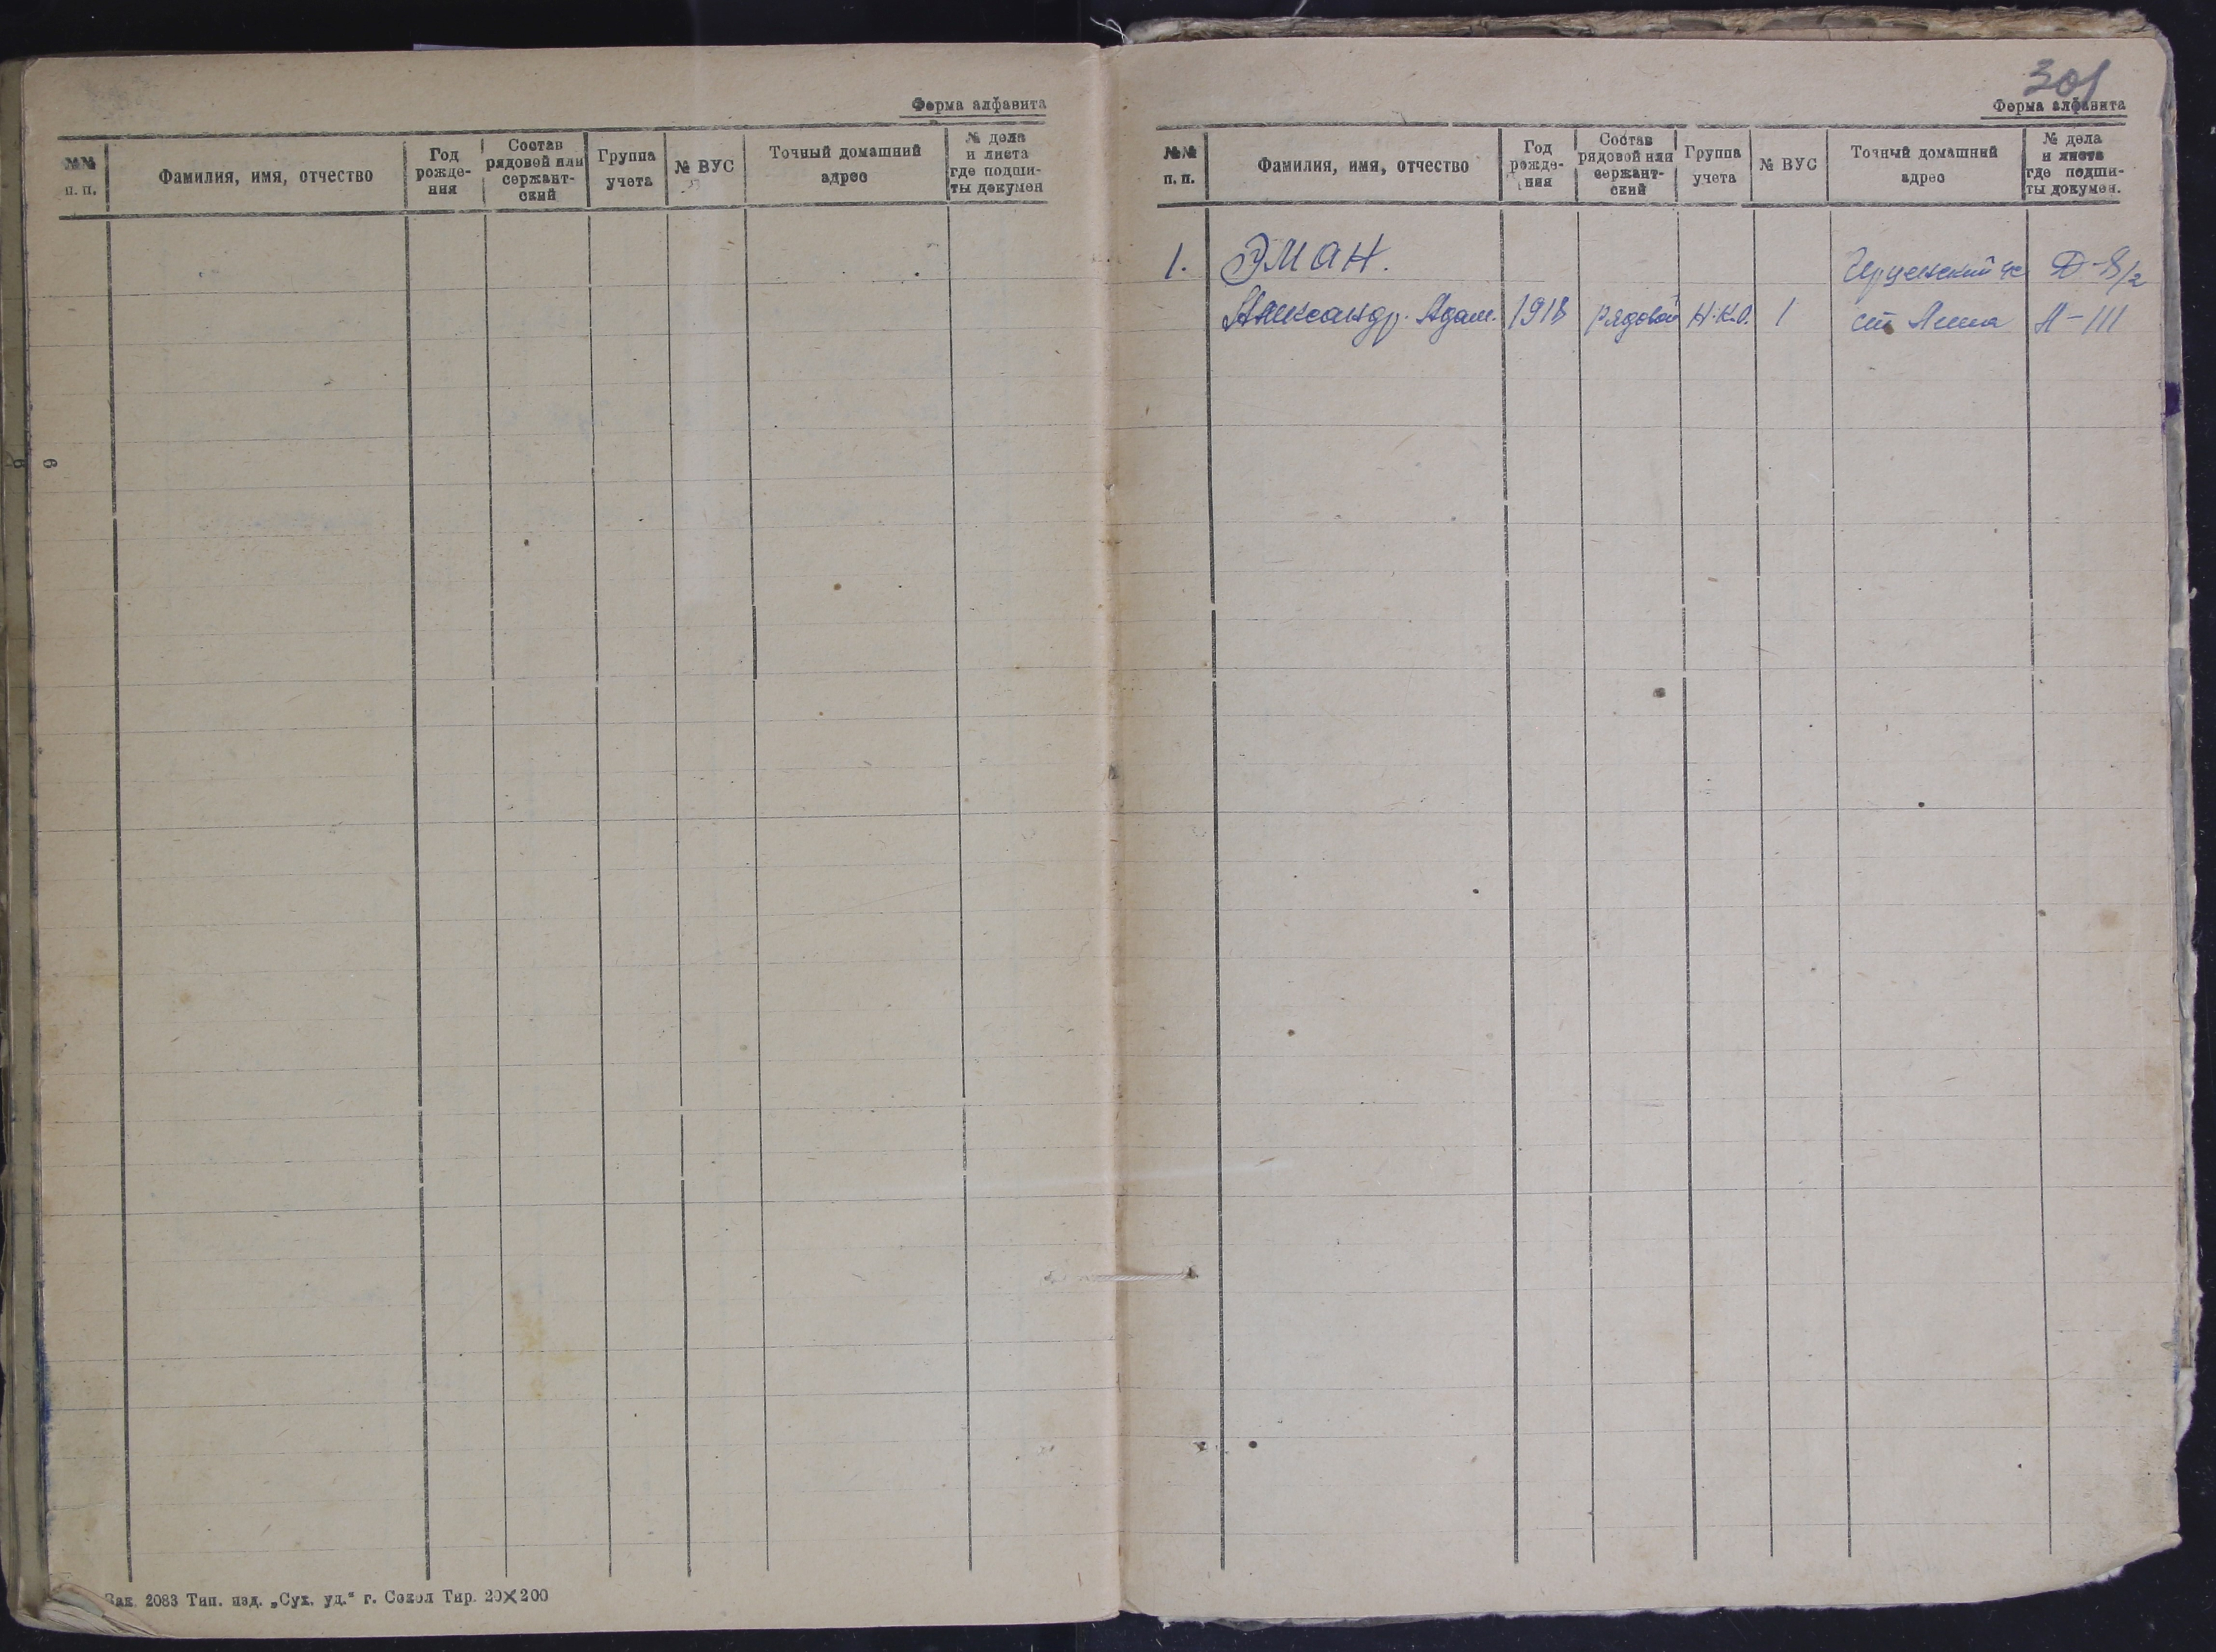 Форма алфавита
№№ п. п.
Фамилия, имя, отчество
Год рожде-
ния
Состав
рядовой или
сержант-
ский
Группа
учета
№ ВУС
Точный домашний
адрес
№ дела
и листа
где подши-
ты докумен
Зак. 2083 Тип. изд. „Сух. уд.“ г. Сокол Тир. 20×200
301
Форма алфавита
№№ п. п.
Фамилия, имя, отчество
Год
рожде-
ния
Состав
рядовой или
сержант-
ский
Группа
учета
№ ВУС
Точный домашний
адрес
№ дела
и листа
где подши-
ты докумен.
1. ЭМАН. Д-8/2
Александр. Адам. 1918 рядовой Н.К.О. 1 ст А-111